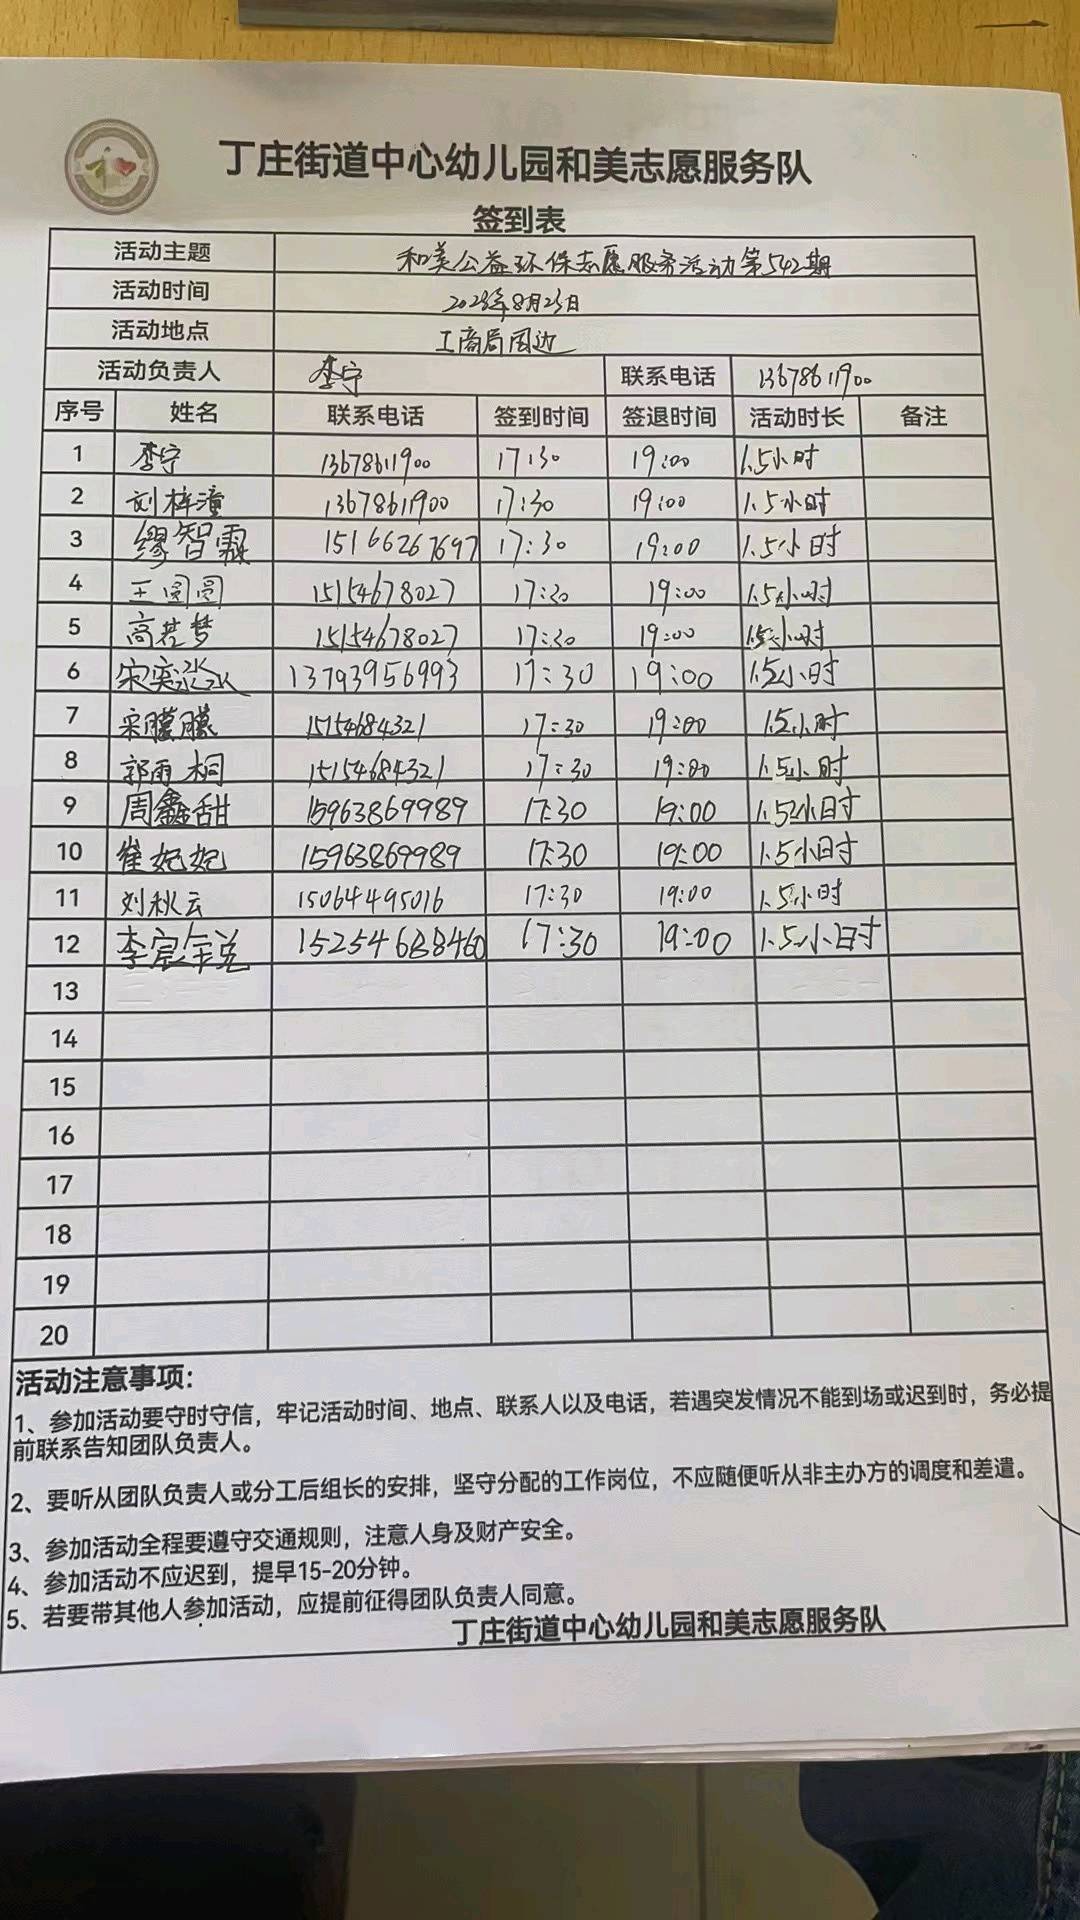 丁庄街道中心幼儿园和美志愿服务队
签到表
活动主题 和美公益环保志愿服务活动第542期
活动时间 2023年8月23日
活动地点 工商局周边
活动负责人 李宁 联系电话 13678611900
序号 姓名 联系电话 签到时间 签退时间 活动时长 备注
1 李宁 13678611900 17:30 19:00 1.5小时
2 刘梓潼 13678611900 17:30 19:00 1.5小时
3 缪智霖 15166267697 17:30 19:00 1.5小时
4 王圆圆 15154678027 17:30 19:00 1.5小时
5 高若梦 15154678027 17:30 19:00 1.5小时
6 宋奕淼 13793956993 17:30 19:00 1.5小时
7 宋朦朦 15154684321 17:30 19:00 1.5小时
8 郭雨桐 15154684321 17:30 19:00 1.5小时
9 周鑫甜 15963869989 17:30 19:00 1.5小时
10 崔妃妃 15963869989 17:30 19:00 1.5小时
11 刘秋云 15064495016 17:30 19:00 1.5小时
12 李宸锐 15254688460 17:30 19:00 1.5小时
13
14
15
16
17
18
19
20
活动注意事项:
1、参加活动要守时守信，牢记活动时间、地点、联系人以及电话，若遇突发情况不能到场或迟到时，务必提
前联系告知团队负责人。
2、要听从团队负责人或分工后组长的安排，坚守分配的工作岗位，不应随便听从非主办方的调度和差遣。
3、参加活动全程要遵守交通规则，注意人身及财产安全。
4、参加活动不应迟到，提早15-20分钟。
5、若要带其他人参加活动，应提前征得团队负责人同意。
丁庄街道中心幼儿园和美志愿服务队